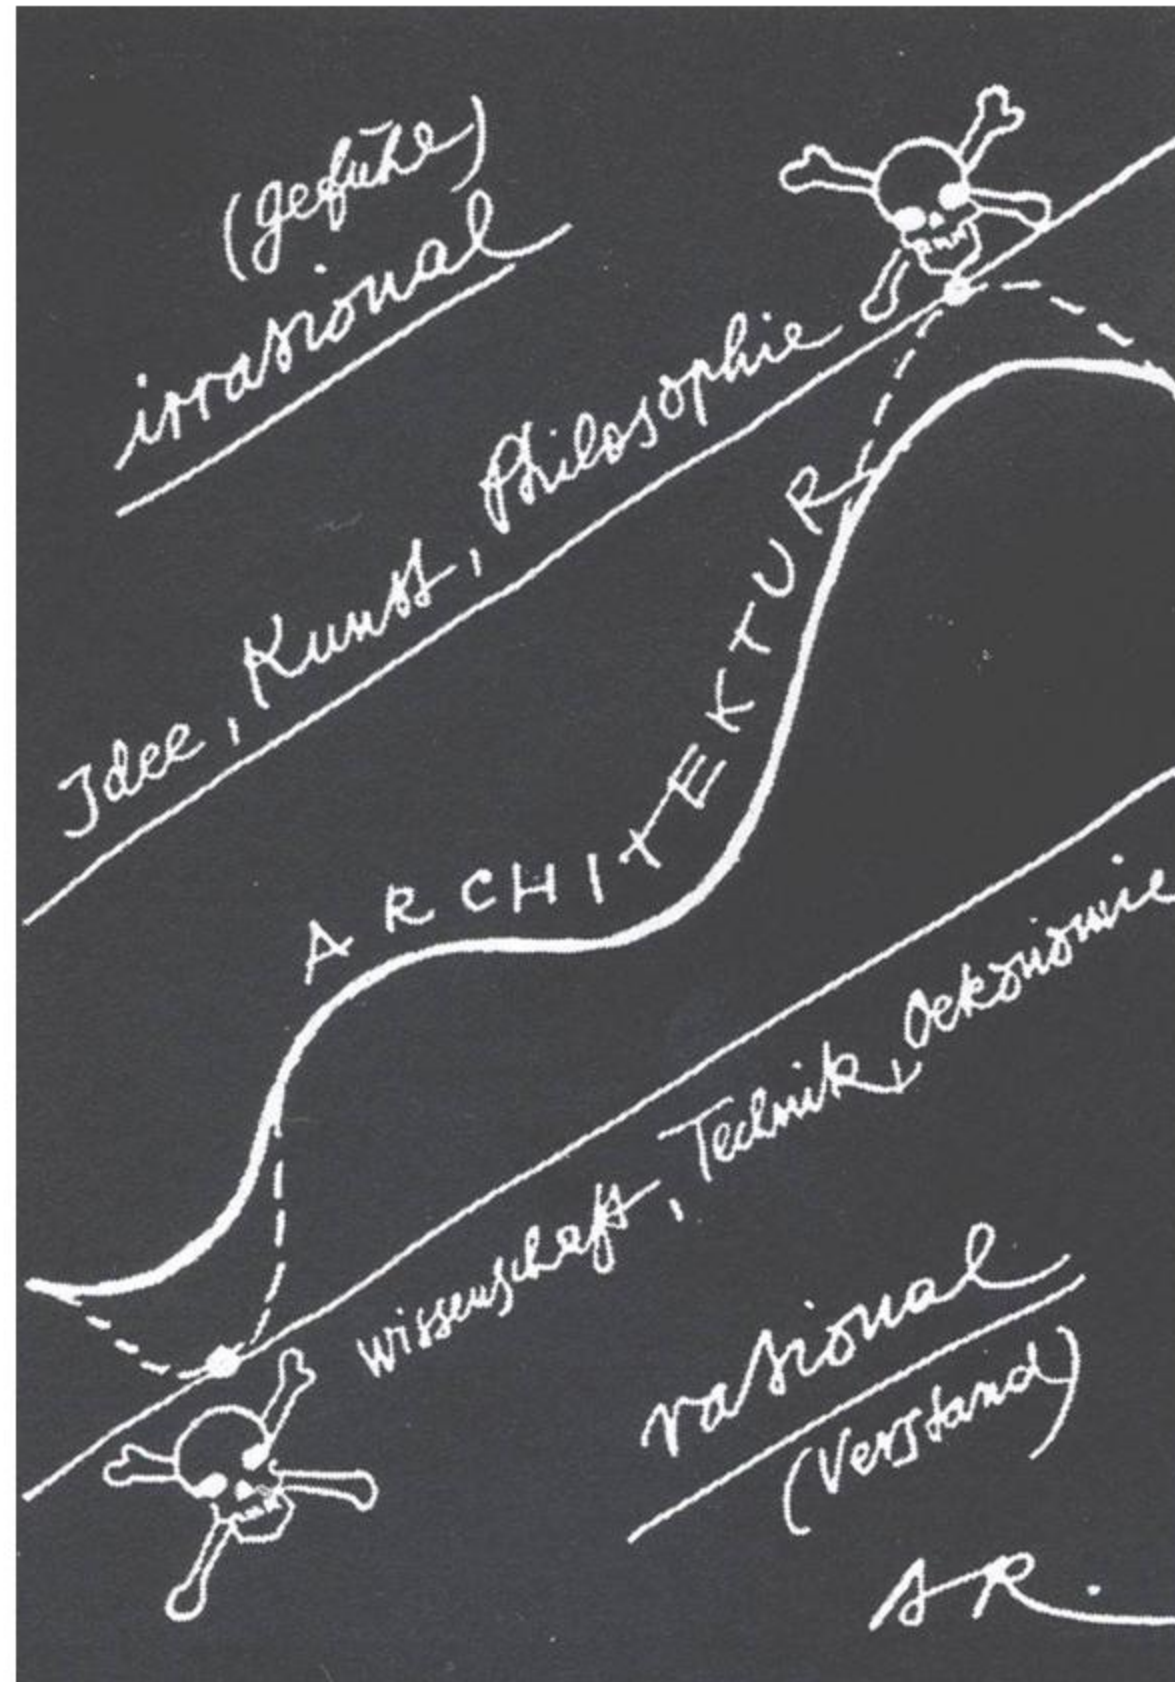 (Gefühl)
irrational
Idee, Kunst, Philosophie
ARCHITEKTUR
Wissenschaft, Technik, Oekonomie
rational
(Verstand)